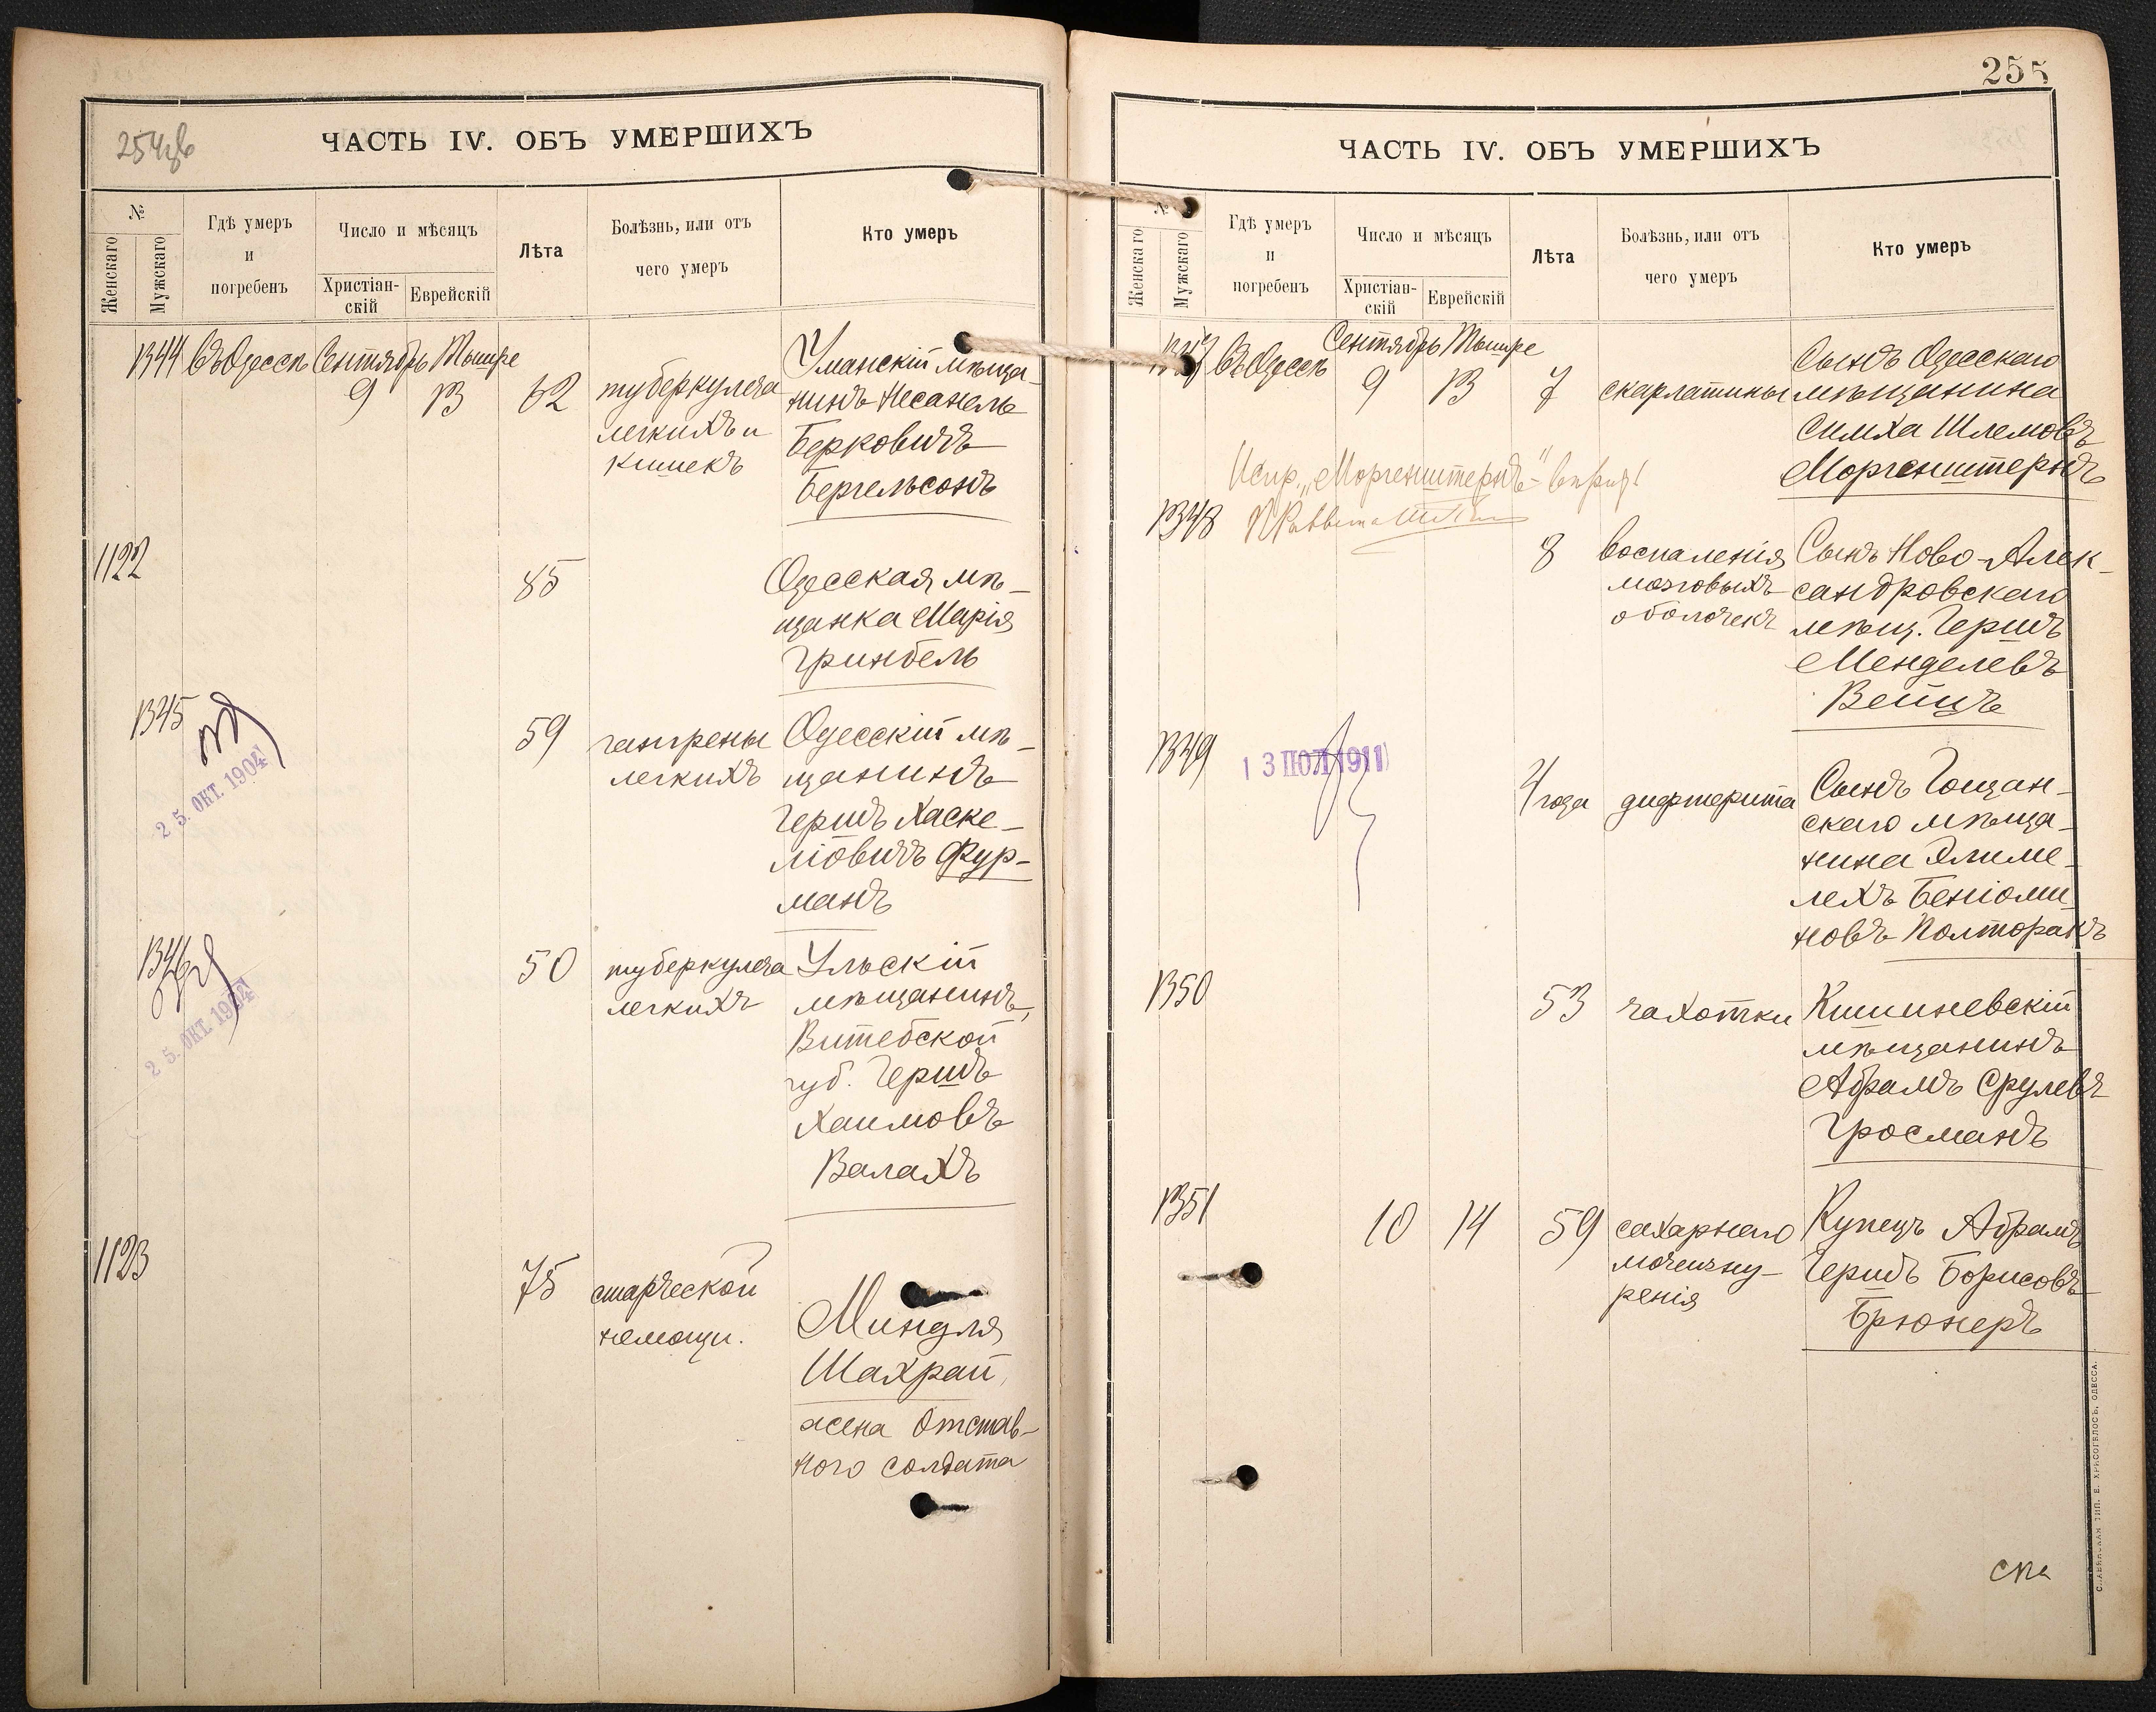 254об
ЧАСТЬ IV. ОБЪ УМЕРШИХЪ
№
Женскаго
Мужскаго
Гдѣ умеръ
и
погребенъ
Число и мѣсяцъ
Христіан-
скій
Еврейскій
Лѣта
Болѣзнь, или отъ
чего умеръ
Кто умеръ
1344 Въ Одессѣ Сентябрь Тышре
9 13 62
туберкулеза
легкихъ и
кишекъ
Уманскій мѣща-
нинъ Несанель
Берковичъ
Бергельсонъ
1122
85
Одесская мѣ-
щанка Марія
Гринбель
1345
25. ОКТ. 1904
59
гангрены
легкихъ
Одесскій мѣ-
щанинъ
Гершъ Хаске-
ліовичъ Фур-
манъ
1346
25. ОКТ. 1904
50
туберкулеза
легкихъ
Ульскій
мѣщанинъ,
Витебской
губ. Гершъ
Хаимовъ
Валахъ
1123
75
старческой
немощи.
Миндля
Шахрай,
жена отстав-
ного солдата
255
ЧАСТЬ IV. ОБЪ УМЕРШИХЪ
№
Женскаго
Мужскаго
Гдѣ умеръ
и
погребенъ
Число и мѣсяцъ
Христіан-
скій
Еврейскій
Лѣта
Болѣзнь, или отъ
чего умеръ
Кто умеръ
1347 Въ Одессѣ
Сентябрь Тышре
9 13 7
скарлатины
Сынъ Одесскаго
мѣщанина
Симха Шлемовъ
Моргенштернъ
Испр. „Моргенштернъ"
1348
8
воспаленія
мозговыхъ
оболочекъ
Сынъ Ново-Алек-
сандровскаго
мѣщ. Гершъ
Менделевъ
Вейцъ
1349
13 ІЮЛ 1911
4 года
дифтерита
Сынъ Гощан-
скаго мѣща-
нина Элиме-
лехъ Беніоми-
новъ Полторакъ
1350
53
чахотки
Кишиневскій
мѣщанинъ
Абрамъ Срулевъ
Гросманъ
1351
10 14 59
сахарнаго
мочеизну-
ренія
Купецъ Абрамъ
Гершъ Борисовъ
Брюнеръ
СЛАВЯНСКАЯ ТИП. Е. ХРИСОГЕЛОСЪ, ОДЕССА.